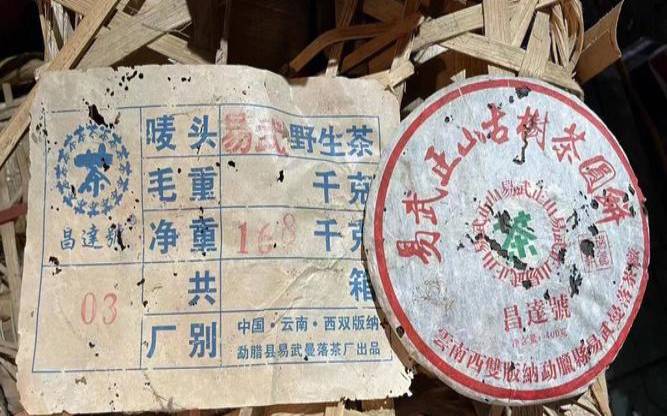 唛头 易武野生茶
毛重 千克
净重 168 千克
共 箱
厂别 中国·云南·西双版纳
勐腊县易武曼落茶厂出品
茶
昌達號
03
易武正山古樹茶圓餅
易武正山 易武正山
茶
昌達號
400g
雲南西雙版納勐臘縣易武曼落茶廠